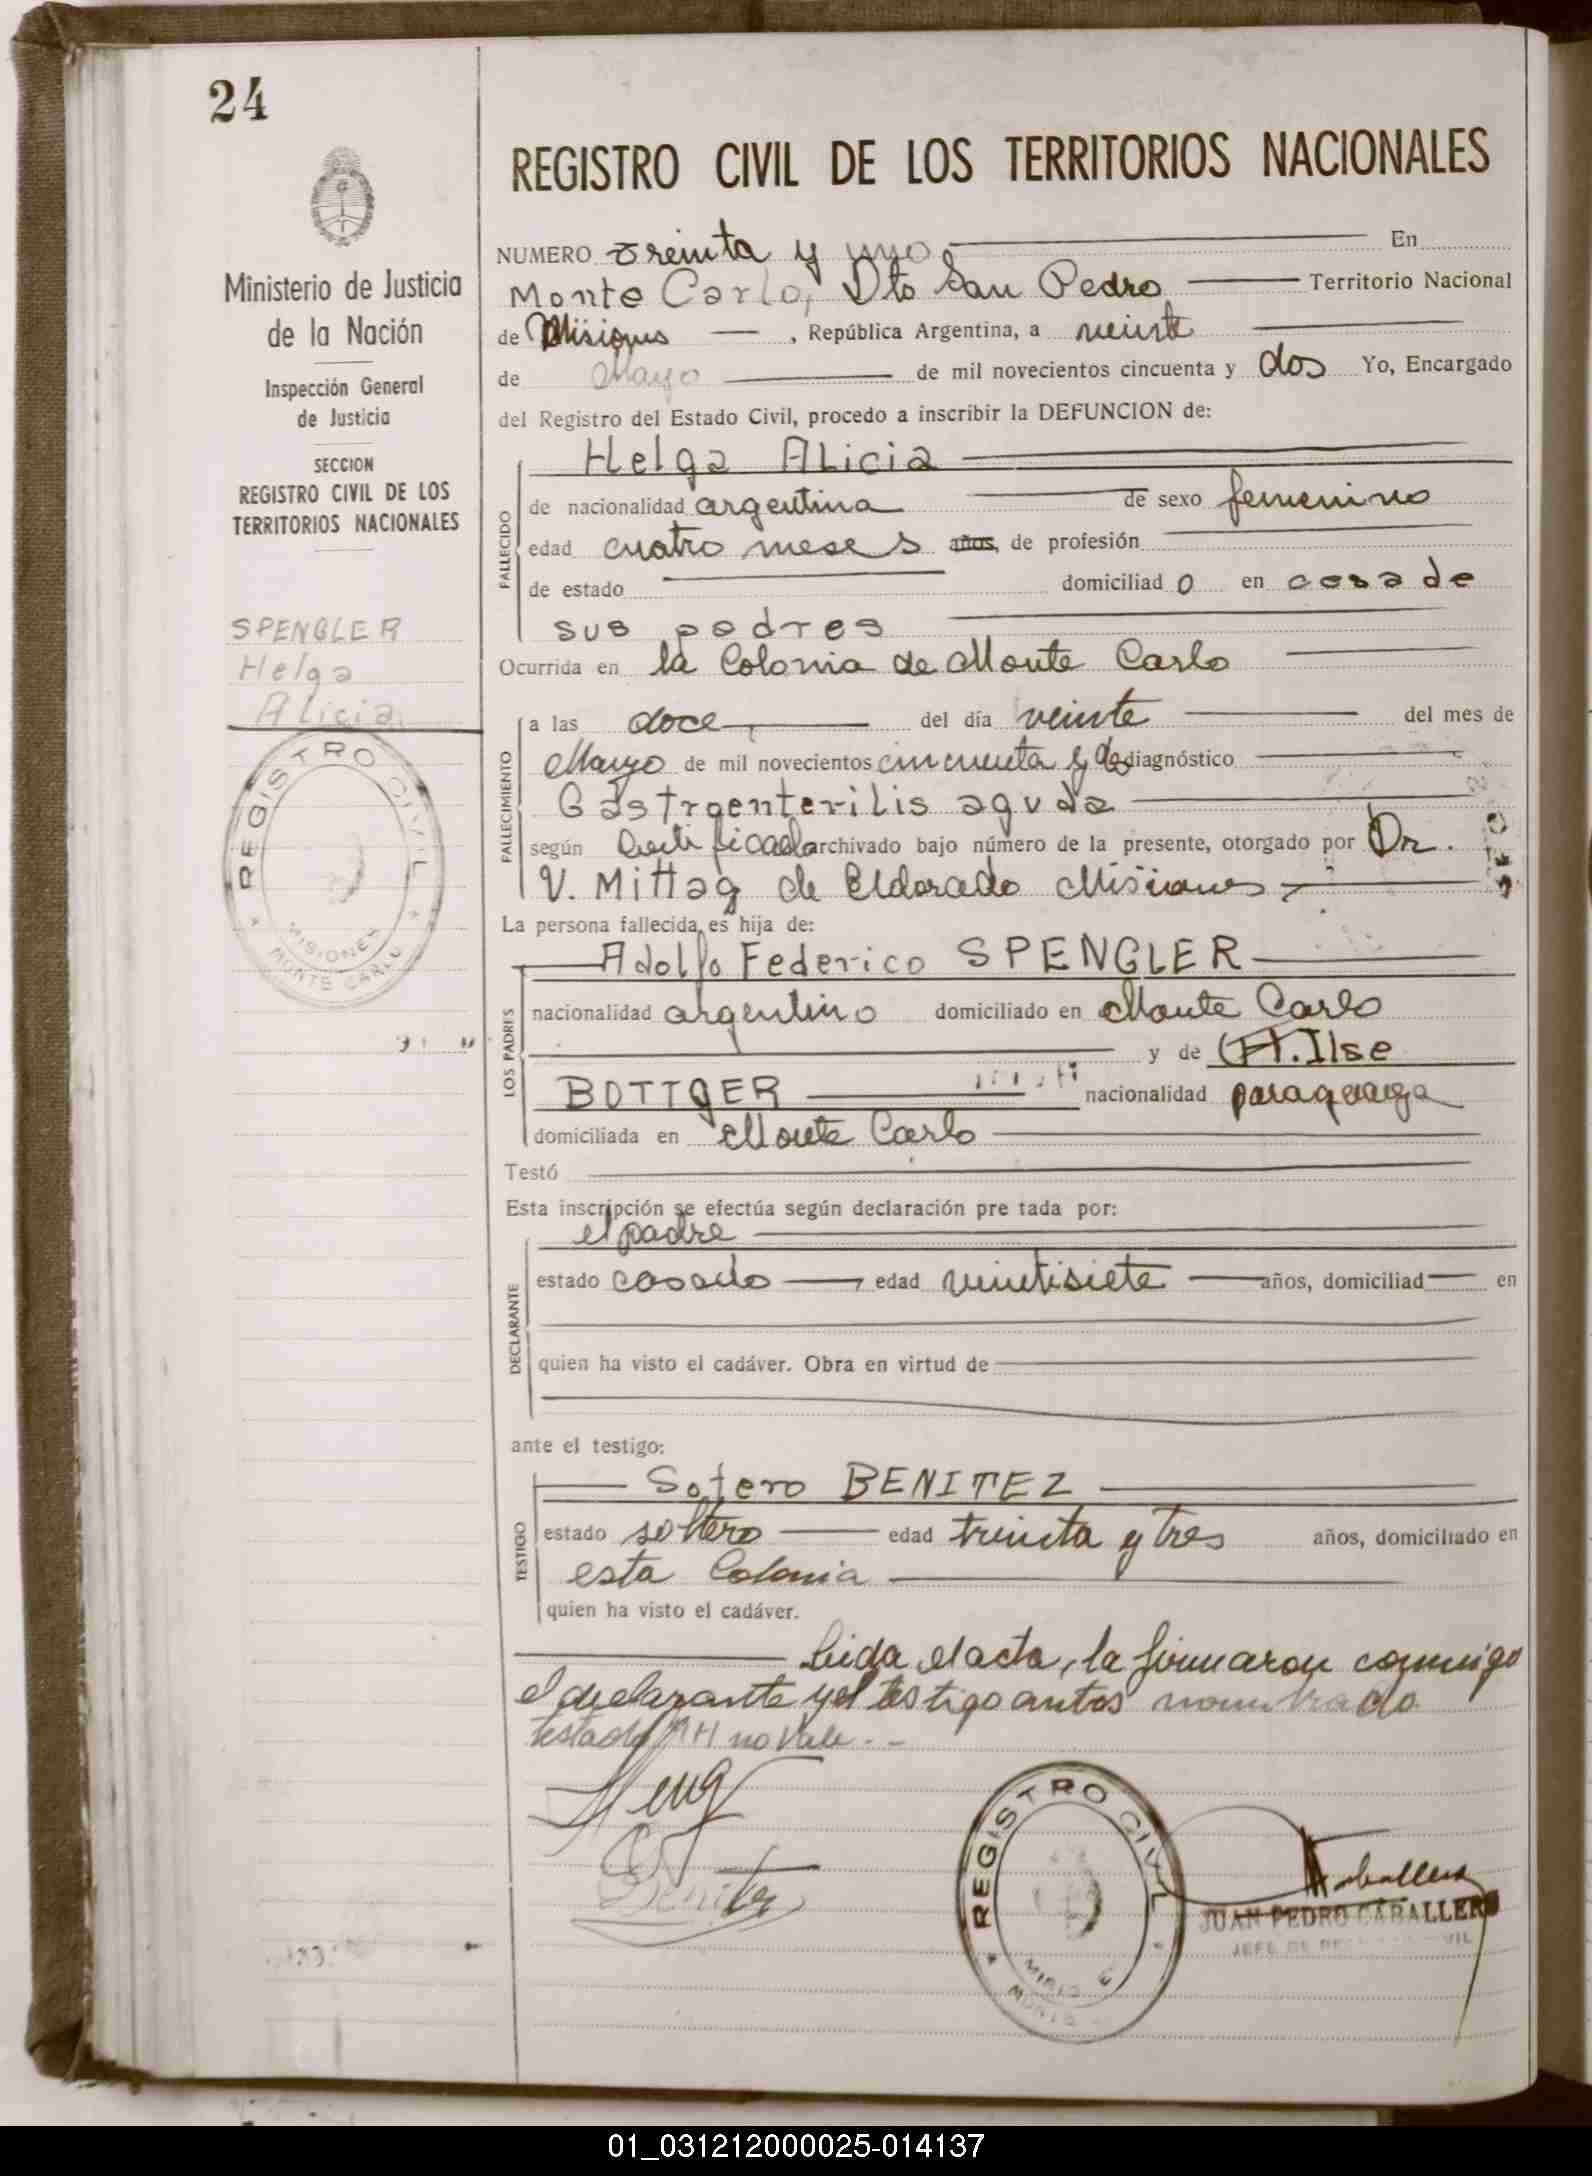 24
REGISTRO CIVIL DE LOS TERRITORIOS NACIONALES
Ministerio de Justicia
de la Nación
Inspección General
de Justicia
SECCION
REGISTRO CIVIL DE LOS
TERRITORIOS NACIONALES
SPENGLER
Helga
Alicia
REGISTRO CIVIL
MISIONES
MONTE CARLO
NUMERO treinta y uno En
Monte Carlo, Dto San Pedro Territorio Nacional
de Misiones , República Argentina, a veinte
de Mayo de mil novecientos cincuenta y dos Yo, Encargado
del Registro del Estado Civil, procedo a inscribir la DEFUNCION de:
Helga ALicia
FALLECIDO
de nacionalidad argentina de sexo femenino
edad cuatro meses años, de profesión
de estado domiciliad o en casa de
sus padres
Ocurrida en la Colonia de Monte Carlo
FALLECIMIENTO
a las doce, del día veinte del mes de
Mayo de mil novecientos cincuenta y dos diagnóstico
Gastroenterilis aguda
según Certificado archivado bajo número de la presente, otorgado por Dr.
V. Mittag de Eldorado Misiones
La persona fallecida, es hija de:
LOS PADRES
Adolfo Federico SPENGLER
nacionalidad argentino domiciliado en Monte Carlo
y de H. Ilse
BOTTGER nacionalidad paraguaya
domiciliada en Monte Carlo
Testó
Esta inscripción se efectúa según declaración pre tada por:
DECLARANTE
el padre
estado casado edad veintisiete años, domiciliad en
quien ha visto el cadáver. Obra en virtud de
ante el testigo:
TESTIGO
Sotero BENITEZ
estado soltero edad treinta y tres años, domiciliado en
esta Colonia
quien ha visto el cadáver.
Leida el acta, la firmaron conmigo
el declarante y el testigo antes nombrado
testado no vale.-
REGISTRO CIVIL
JUAN PEDRO CABALLERO
01_031212000025-014137